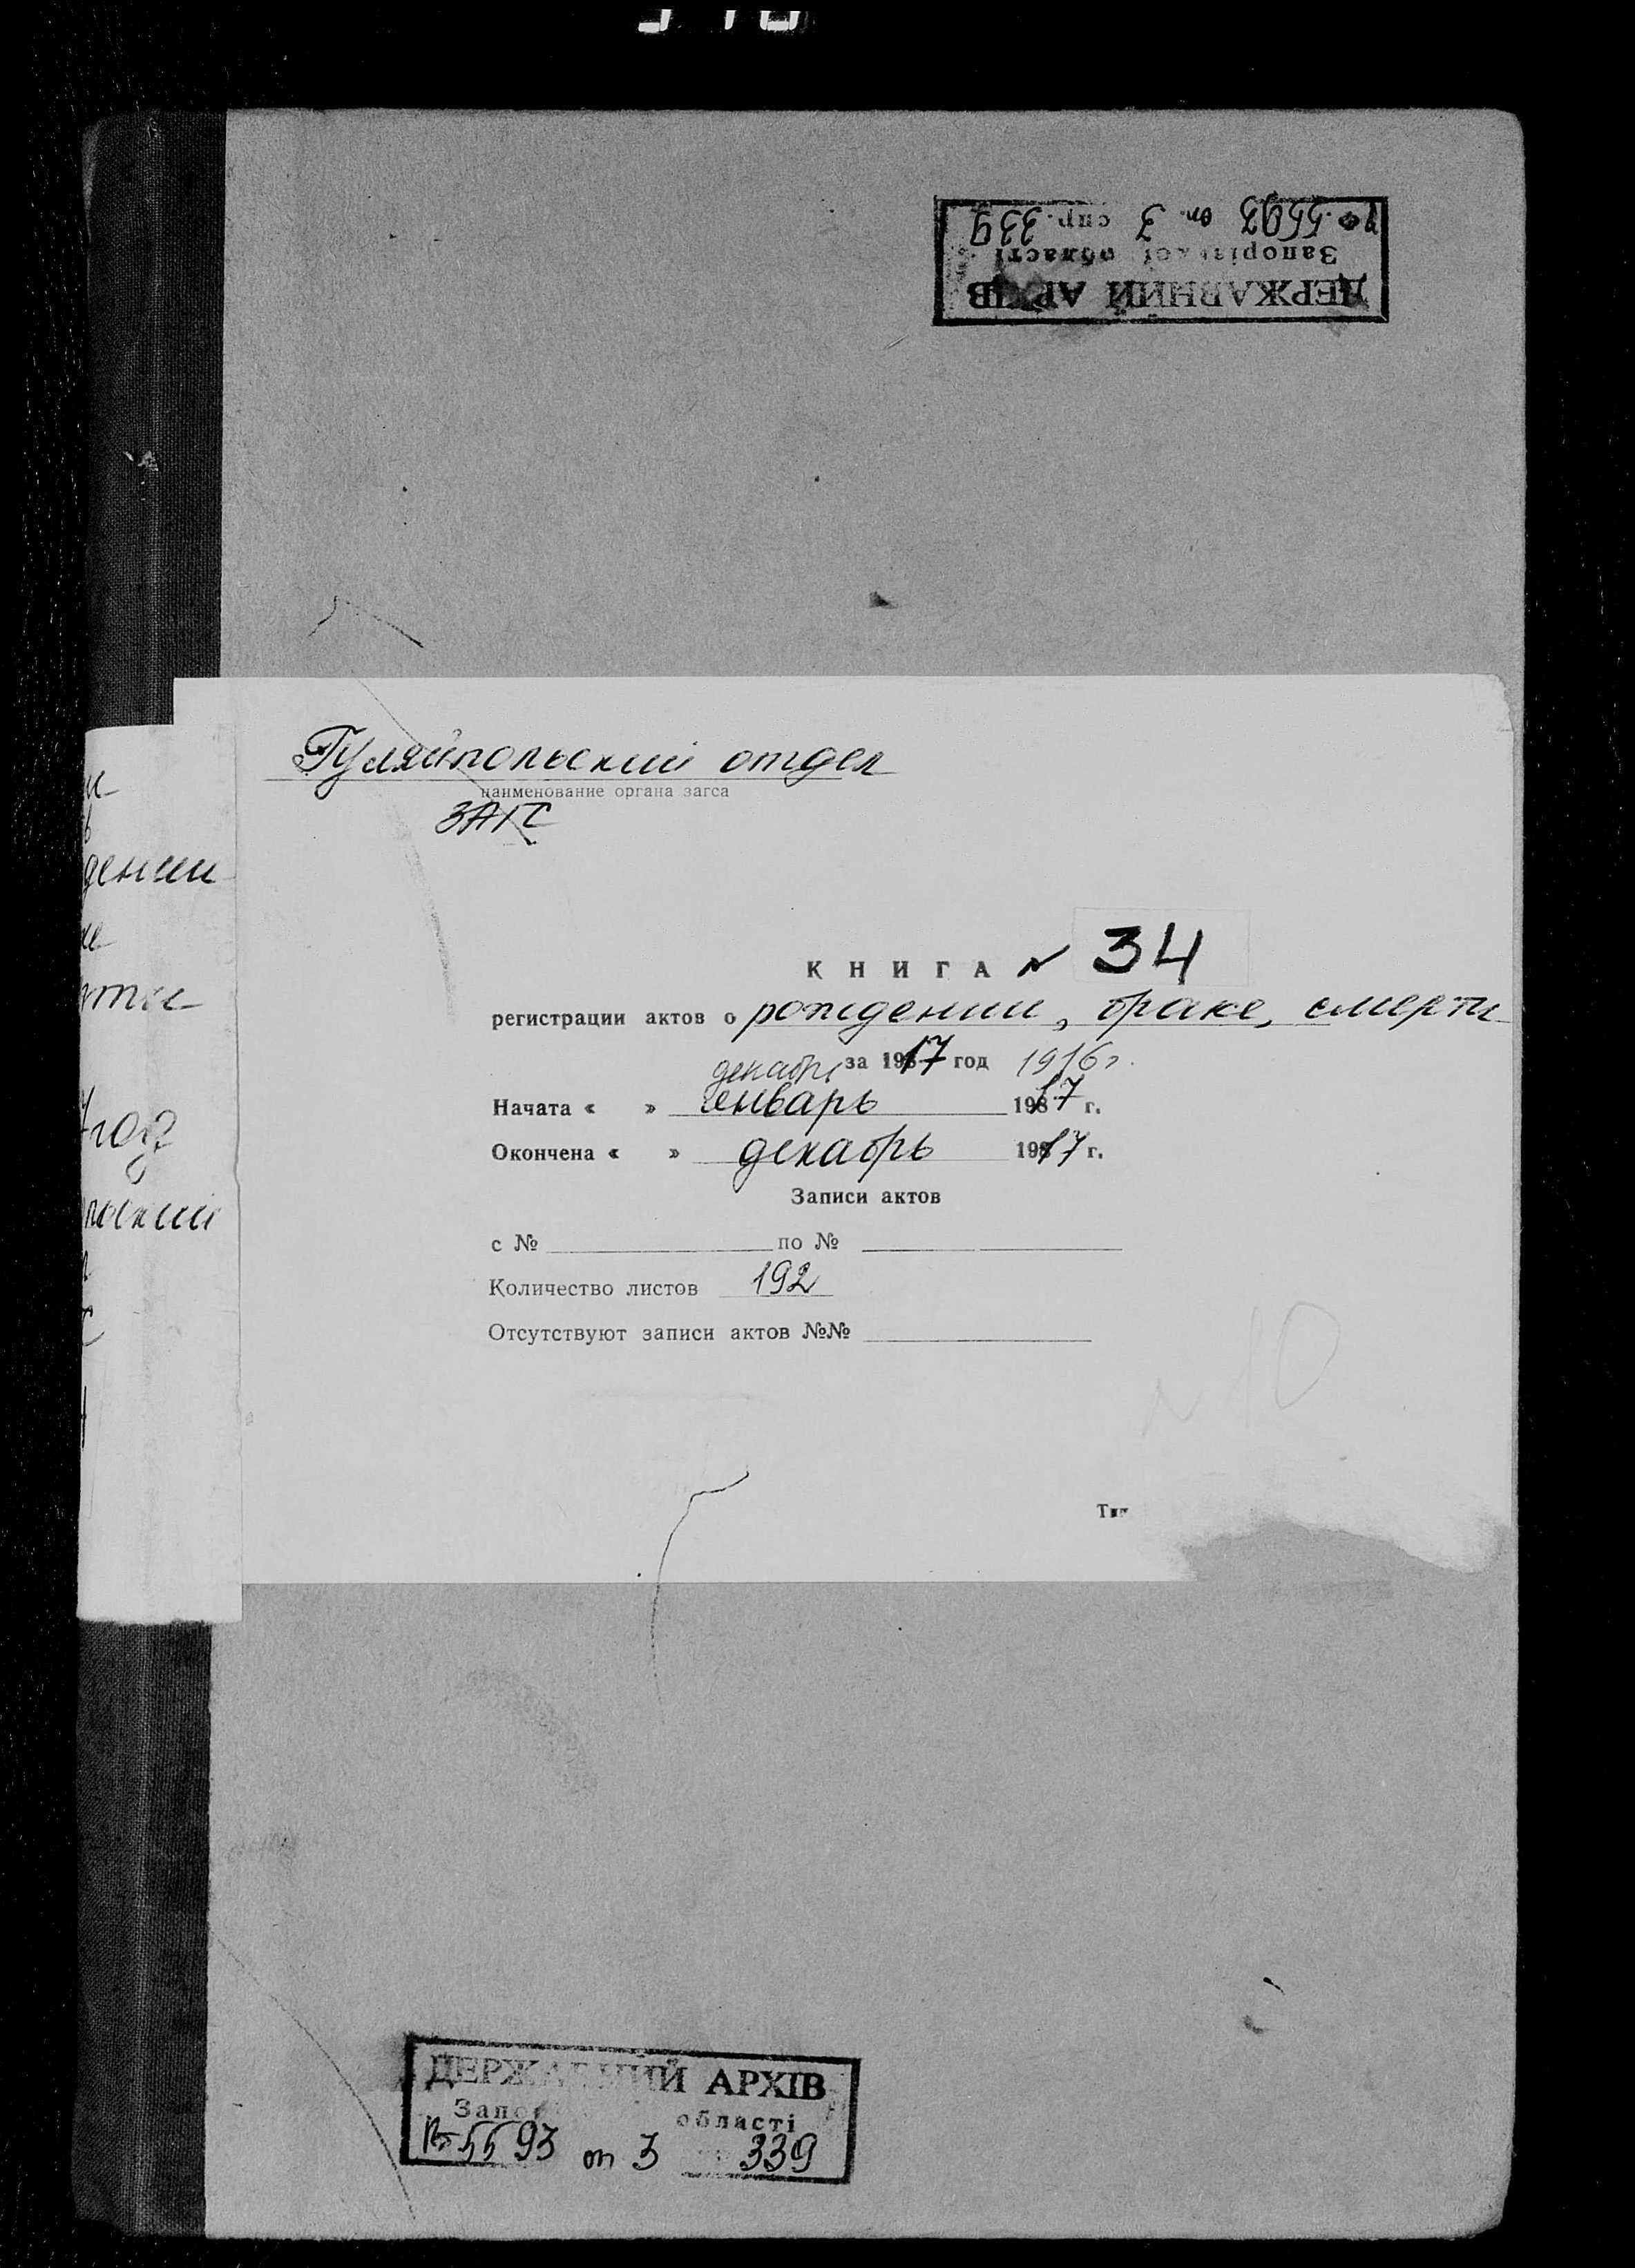 ДЕРЖАВНИЙ АРХІВ
Запорізької області
Р Ф. 5593 оп. 3 спр. 339
Гуляйпольский отдел
наименование органа загса
ЗАГС
КНИГА № 34
регистрации актов о рождении, браке, смерти
за 1917 год 1916 г.
декабрь
Начата « » январь 1917 г.
Окончена « » декабрь 1917 г.
Записи актов
с № по №
Количество листов 192
Отсутствуют записи актов №№
№ 10
Тип
дении
ти
год
льский
ДЕРЖАВНИЙ АРХІВ
Запо области
5593 оп 3 339